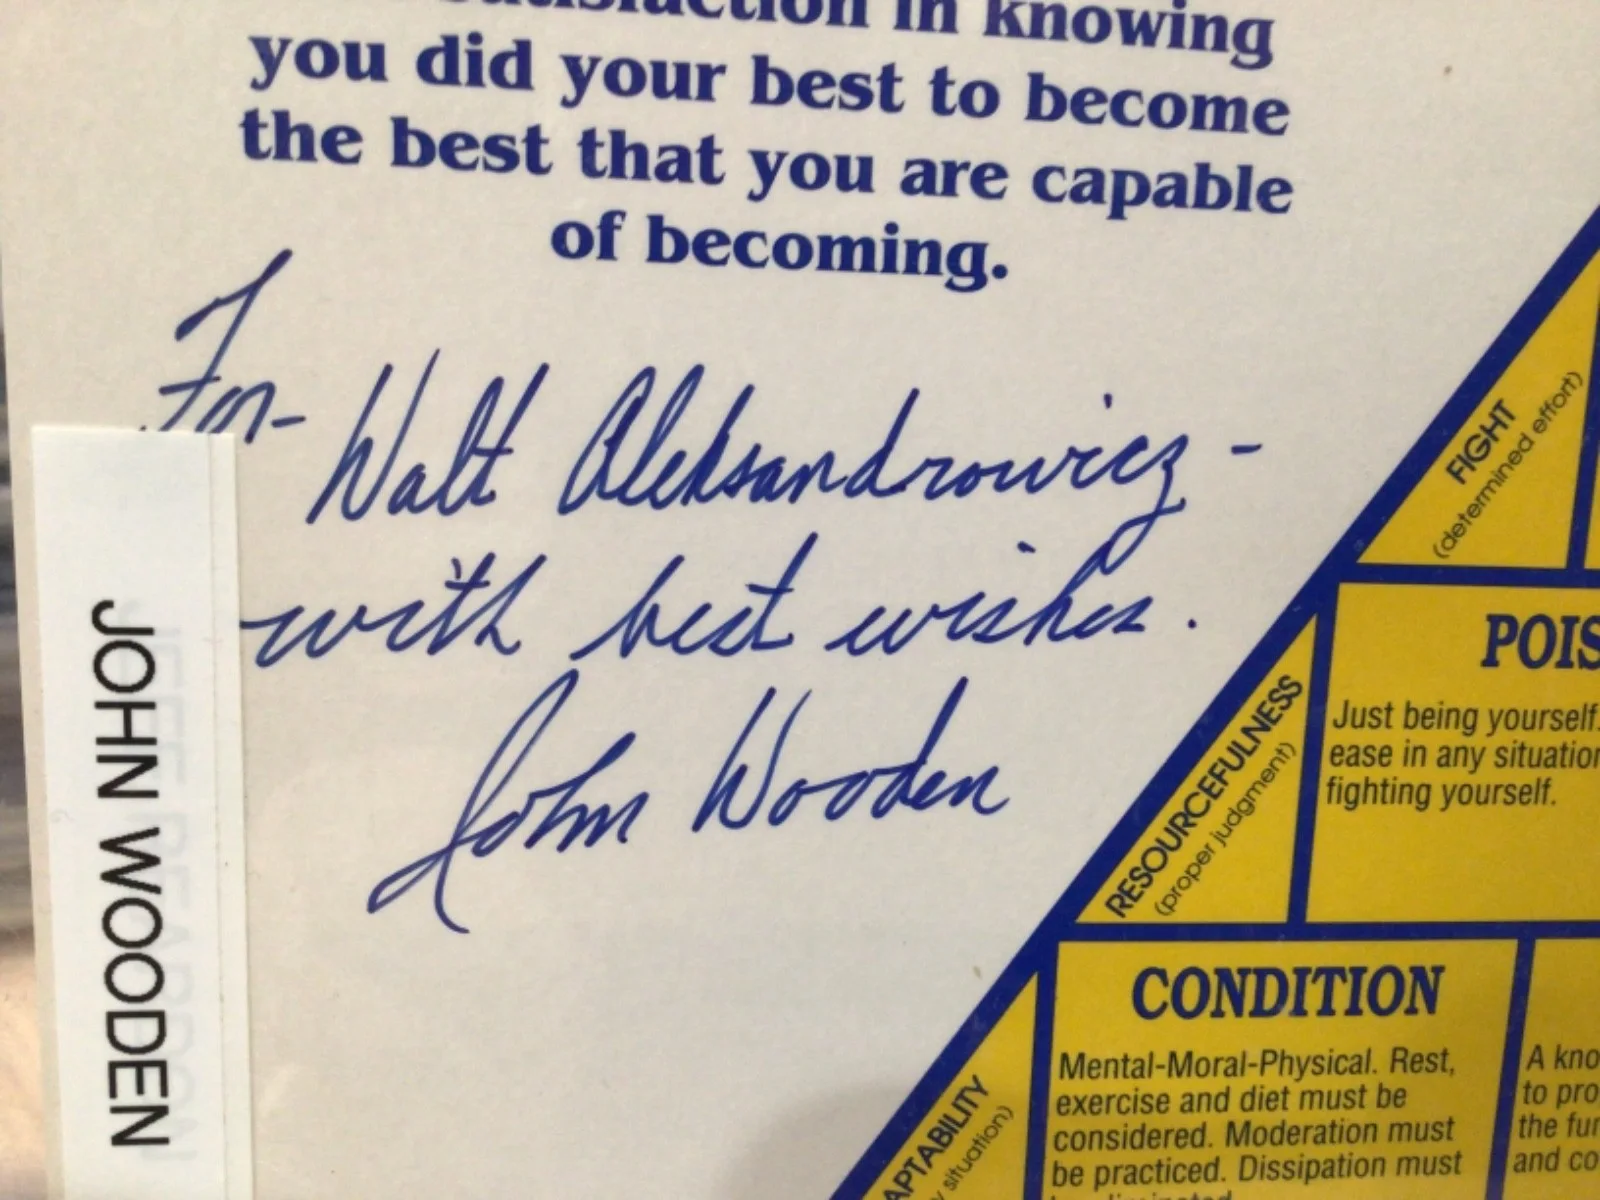 in knowing
you did your best to become
the best that you are capable
of becoming.
For-
Walt Aleksandrowicz -
with best wishes.
John Wooden
JOHN WOODEN
FIGHT
(determined effort)
POIS
Just being yourself.
ease in any situation
fighting yourself.
RESOURCEFULNESS
(proper judgment)
CONDITION
Mental-Moral-Physical. Rest,
exercise and diet must be
considered. Moderation must
be practiced. Dissipation must
A kno
to pro
the fun
and co
APTABILITY
situation)